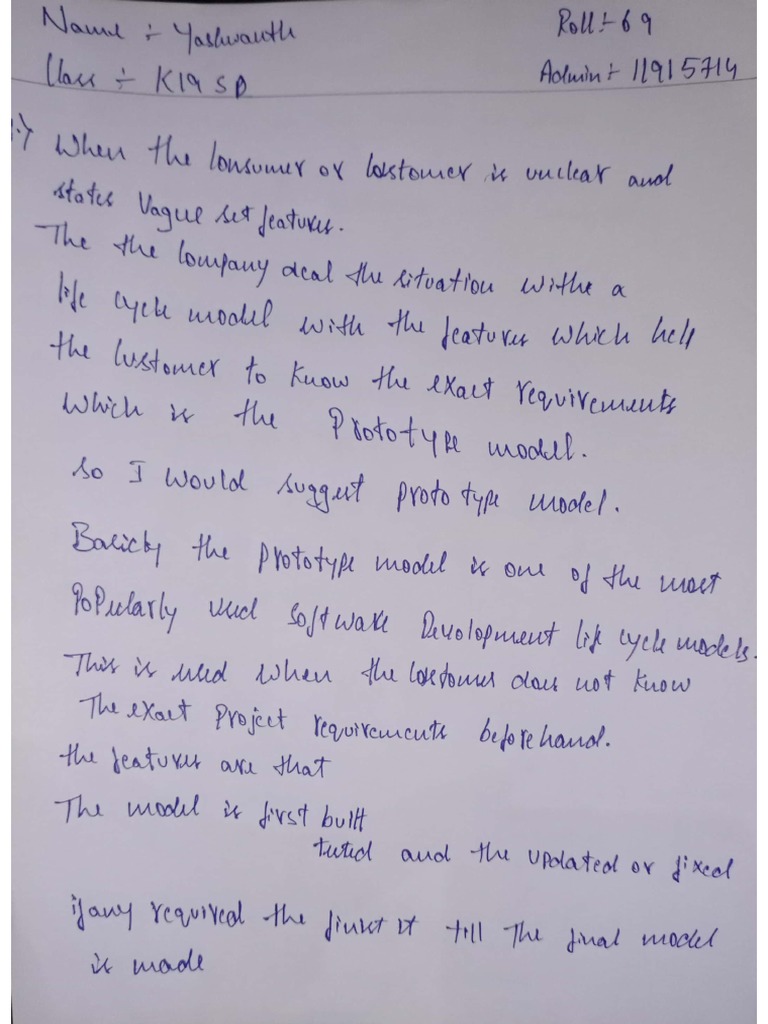 Name :- Yashwanth
Roll :- 69
Class :- K19SP
Admin :- 11915714
1.) When the Consumer or Costomer is unclear and
states Vague set features.
The the Company deal the situation withe a
life cycle model with the features which help
the Customer to know the exact requirements
which is the Prototype model.
so I would suggest prototype model.
Basicly the prototype model is one of the most
Popularly used Software Devolopment life cycle models.
This is used when the Costomer does not know
The exact Project requirements beforehand.
the features are that
The model is first built
tested and the updated or fixed
if any required the finset it till The final model
is made